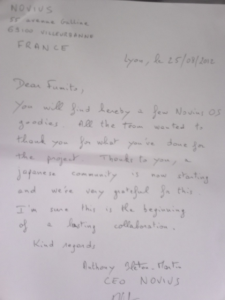 NOVIUS
55 avenue Galline
69100 VILLEURBANNE
FRANCE
Lyon, le 25/07/2012
Dear Fumito,
You will find hereby a few Novius OS
goodies. All the team wanted to
thank you for what you've done for
the project. Thanks to you, a
japanese community is now starting
and we're very grateful for this.
I'm sure this is the beginning
of a lasting collaboration.
Kind regards
CEO NOVIUS